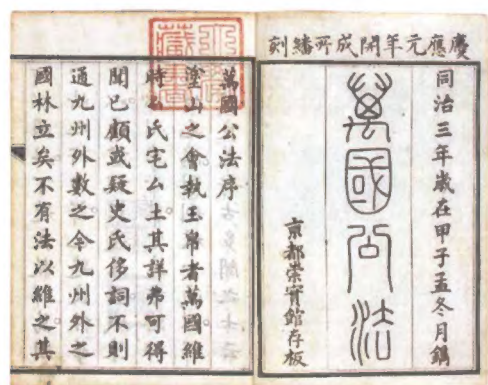 慶應元年開成所繙刻
同治三年歳在甲子孟冬月鐫
萬國公法
京都崇實館存板
萬國公法序
塗山之會執玉帛者萬國維
時某氏宅ム土其詳弗可得
聞已顧或疑史氏侈詞不則
通九州外數之今九州外之
國林立矣不有法以維之其